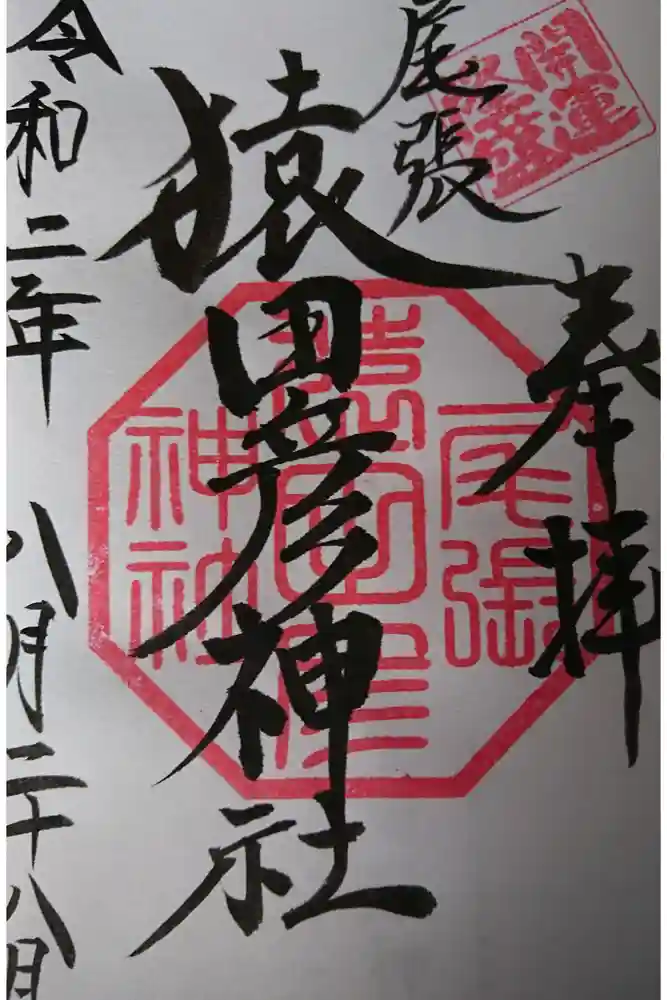 開運
奉拝
尾張
猿田彦神社
尾張
猿田彦
神社
令和二年 八月二十八日